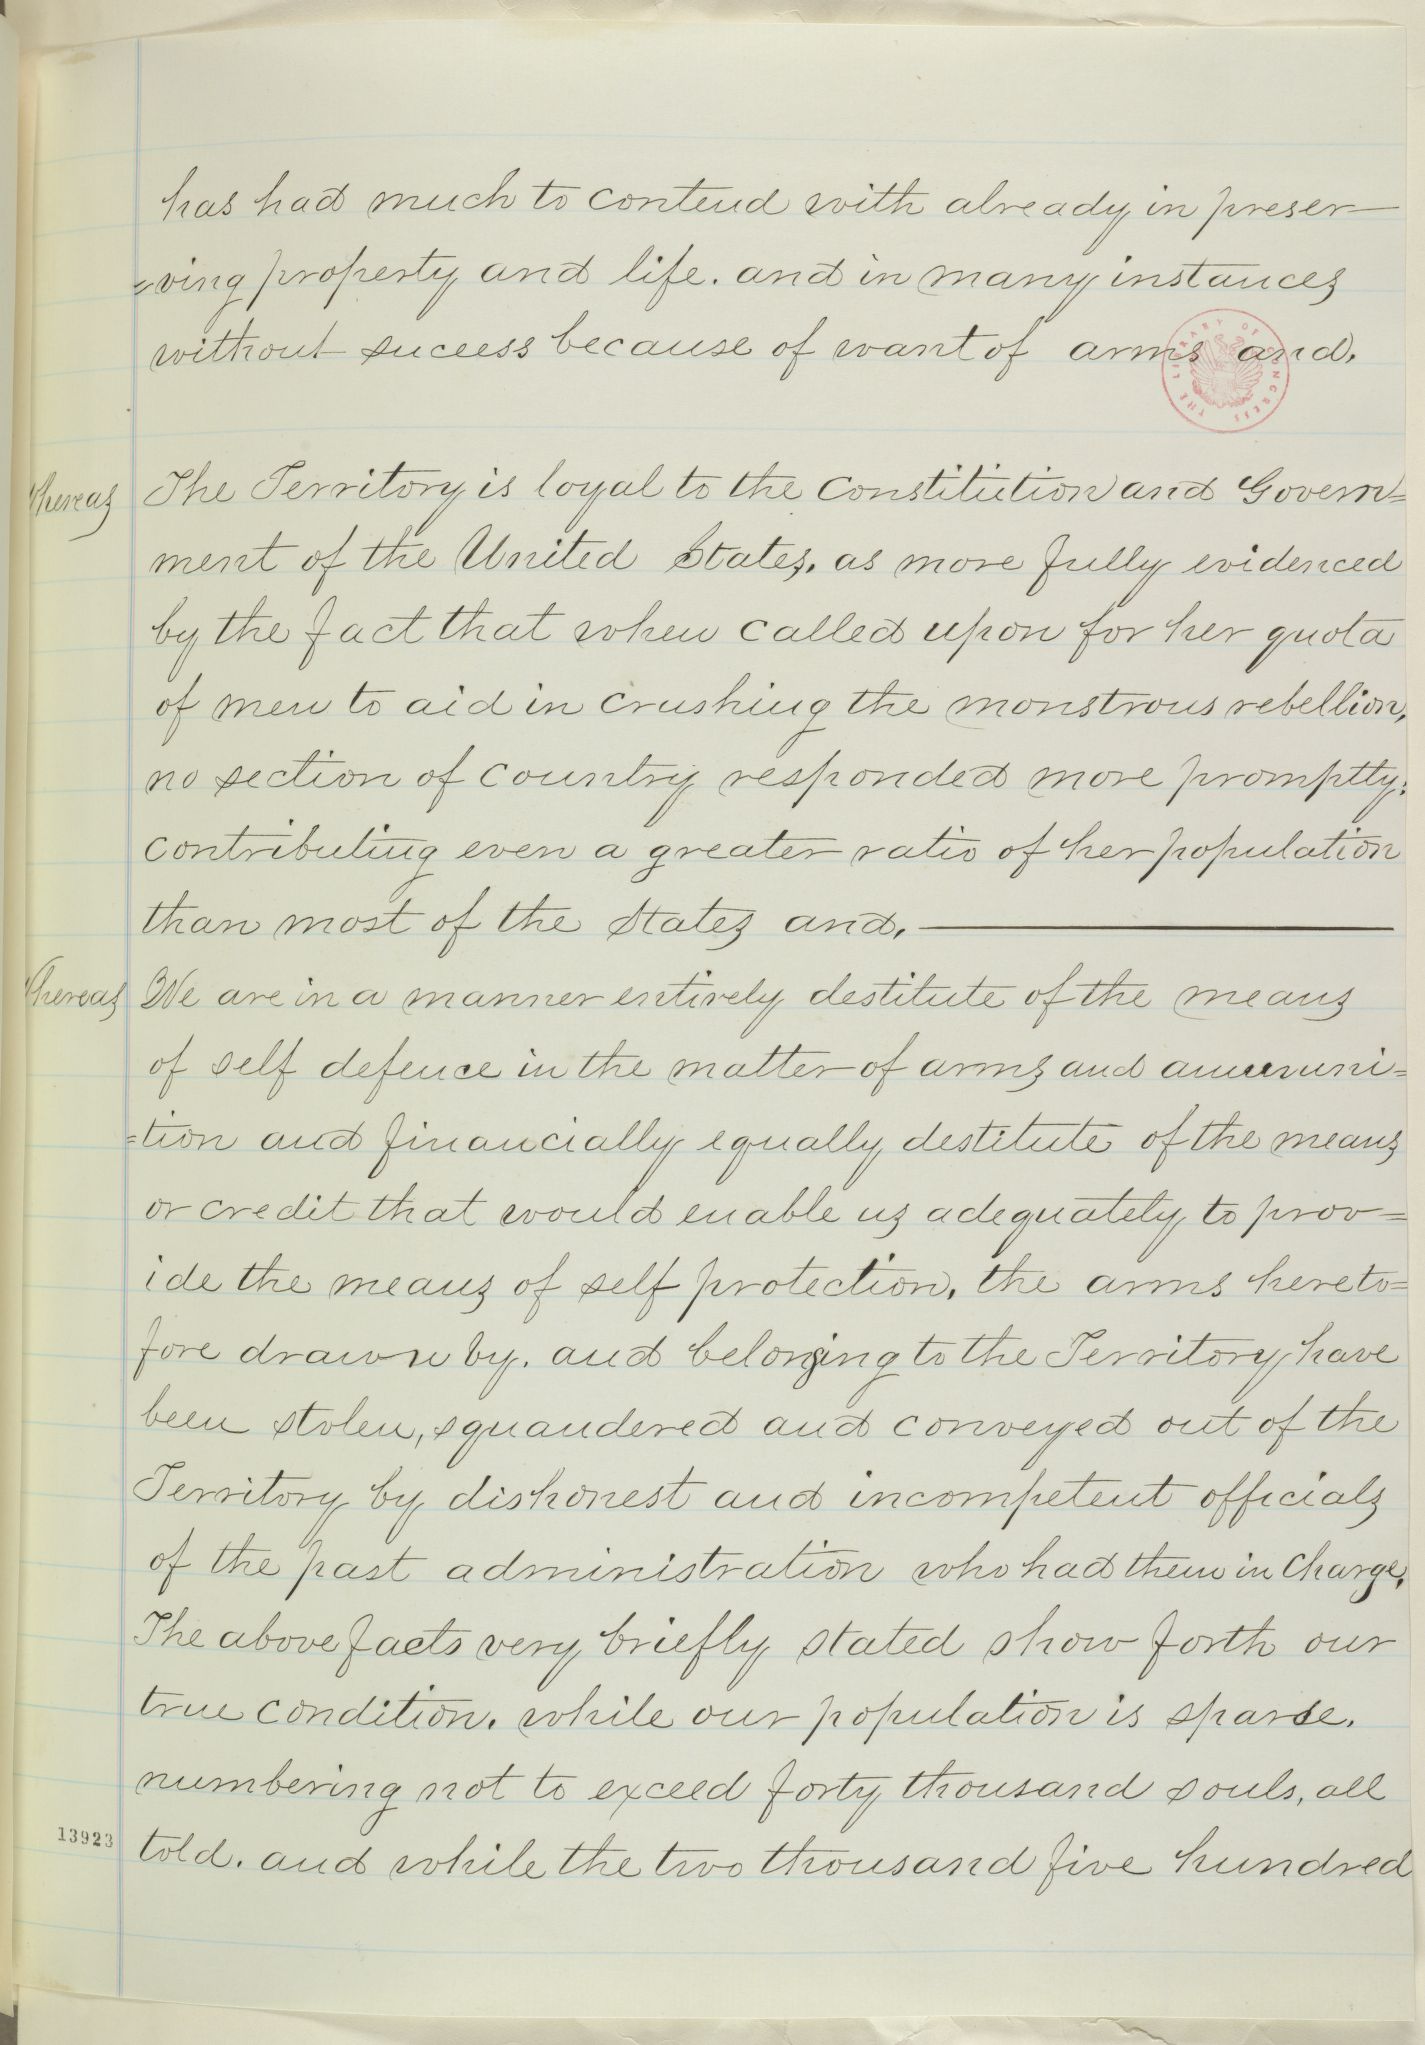 has had much to contend with already in preser-
=ving property and life. and in many instances
without success because of want of arms and,
THE LIBRARY OF CONGRESS
Whereas The Territory is loyal to the Constitution and Govern=
ment of the United States, as more fully evidenced
by the fact that when called upon for her quota
of men to aid in crushing the monstrous rebellion,
no section of country responded more promptly;
contributing even a greater ratio of her population
than most of the States and,
Whereas We are in a manner entirely destitute of the means
of self defence in the matter of arms and ammuni=
=tion and financially equally destitute of the means
or credit that would enable us adequately to prov=
ide the means of self protection, the arms hereto=
fore drawn by, and belonging to the Territory have
been stolen, squandered and conveyed out of the
Territory by dishonest and incompetent officials
of the past administration who had them in charge.
The above facts very briefly stated show forth our
true condition. while our population is sparse.
numbering not to exceed forty thousand souls, all
13923 told. and while the two thousand five hundred